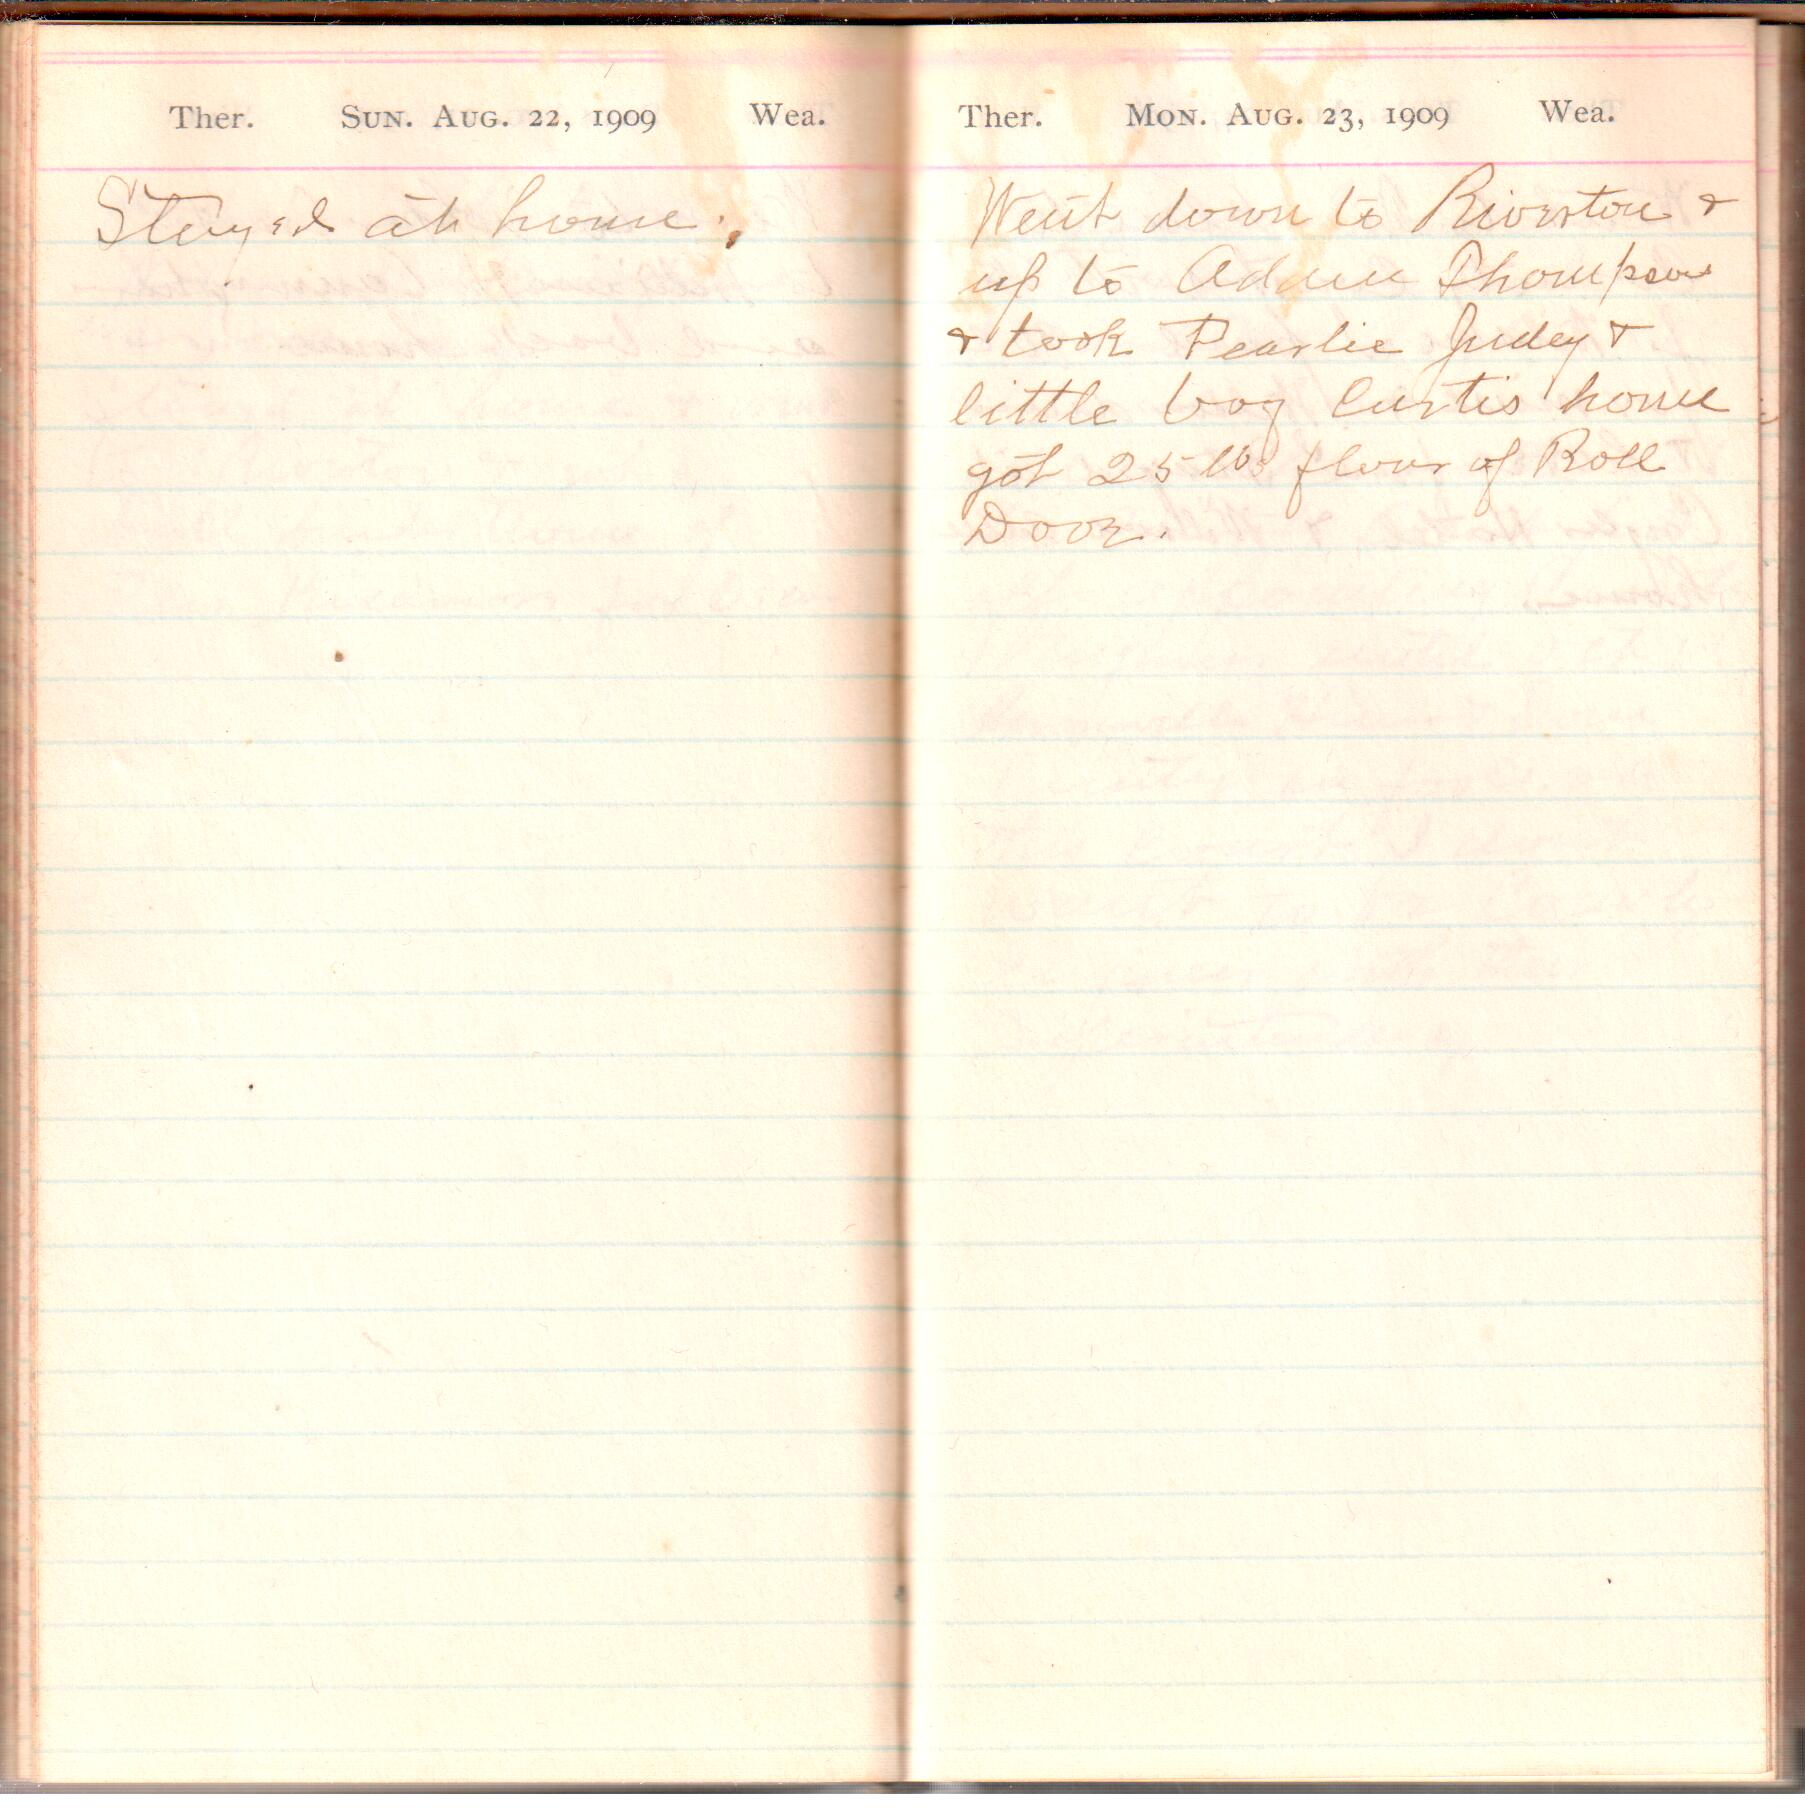 Ther. Sun. Aug. 22, 1909 Wea.
Stayed at home.
Ther. Mon. Aug. 23, 1909 Wea.
Went down to Riverton &
up to Adam Thompson
& took Pearlie Judey &
little boy Curtis home
got 25 lbs flour of Roll
Dove.